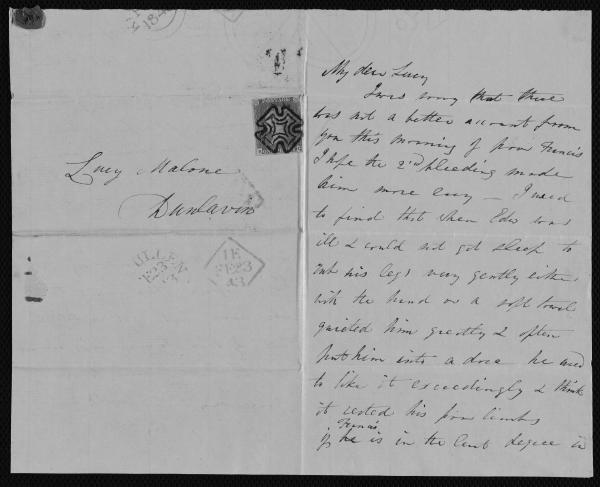 Lucy Malone
Dunlavin
ULLEN
FE23
43
1E
FE23
43
My dear Lucy
I was sorry that there
was not a better account from
you this morning of poor Francis
I hope the 2nd bleeding made
him more easy — I used
to find that when Edw was
ill & could not get sleep to
rub his legs very gently either
with the hand or a soft towel
quieted him greatly & often
put him into a doze he used
to like it exceedingly & think
it rested his poor limbs
Francis
if he is in the least degree in